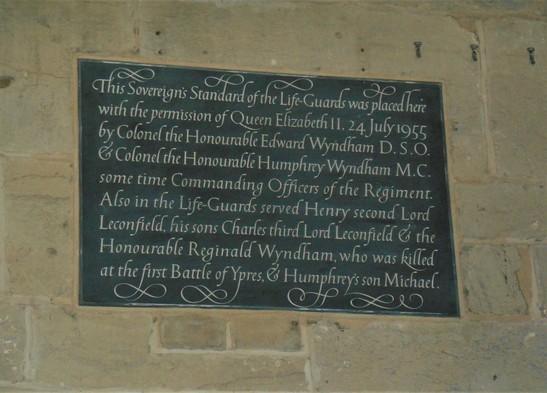 This Sovereign's Standard of the Life-Guards was placed here
with the permission of Queen Elizabeth II. 24 July 1955
by Colonel the Honourable Edward Wyndham D.S.O.
& Colonel the Honourable Humphrey Wyndham M.C.
some time Commanding Officers of the Regiment.
Also in the Life-Guards served Henry second Lord
Leconfield, his sons Charles third Lord Leconfield & the
Honourable Reginald Wyndham, who was killed
at the first Battle of Ypres, & Humphrey's son Michael.